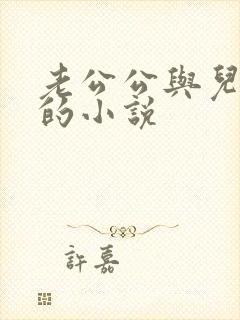 老公公與兒
的小説
許嘉